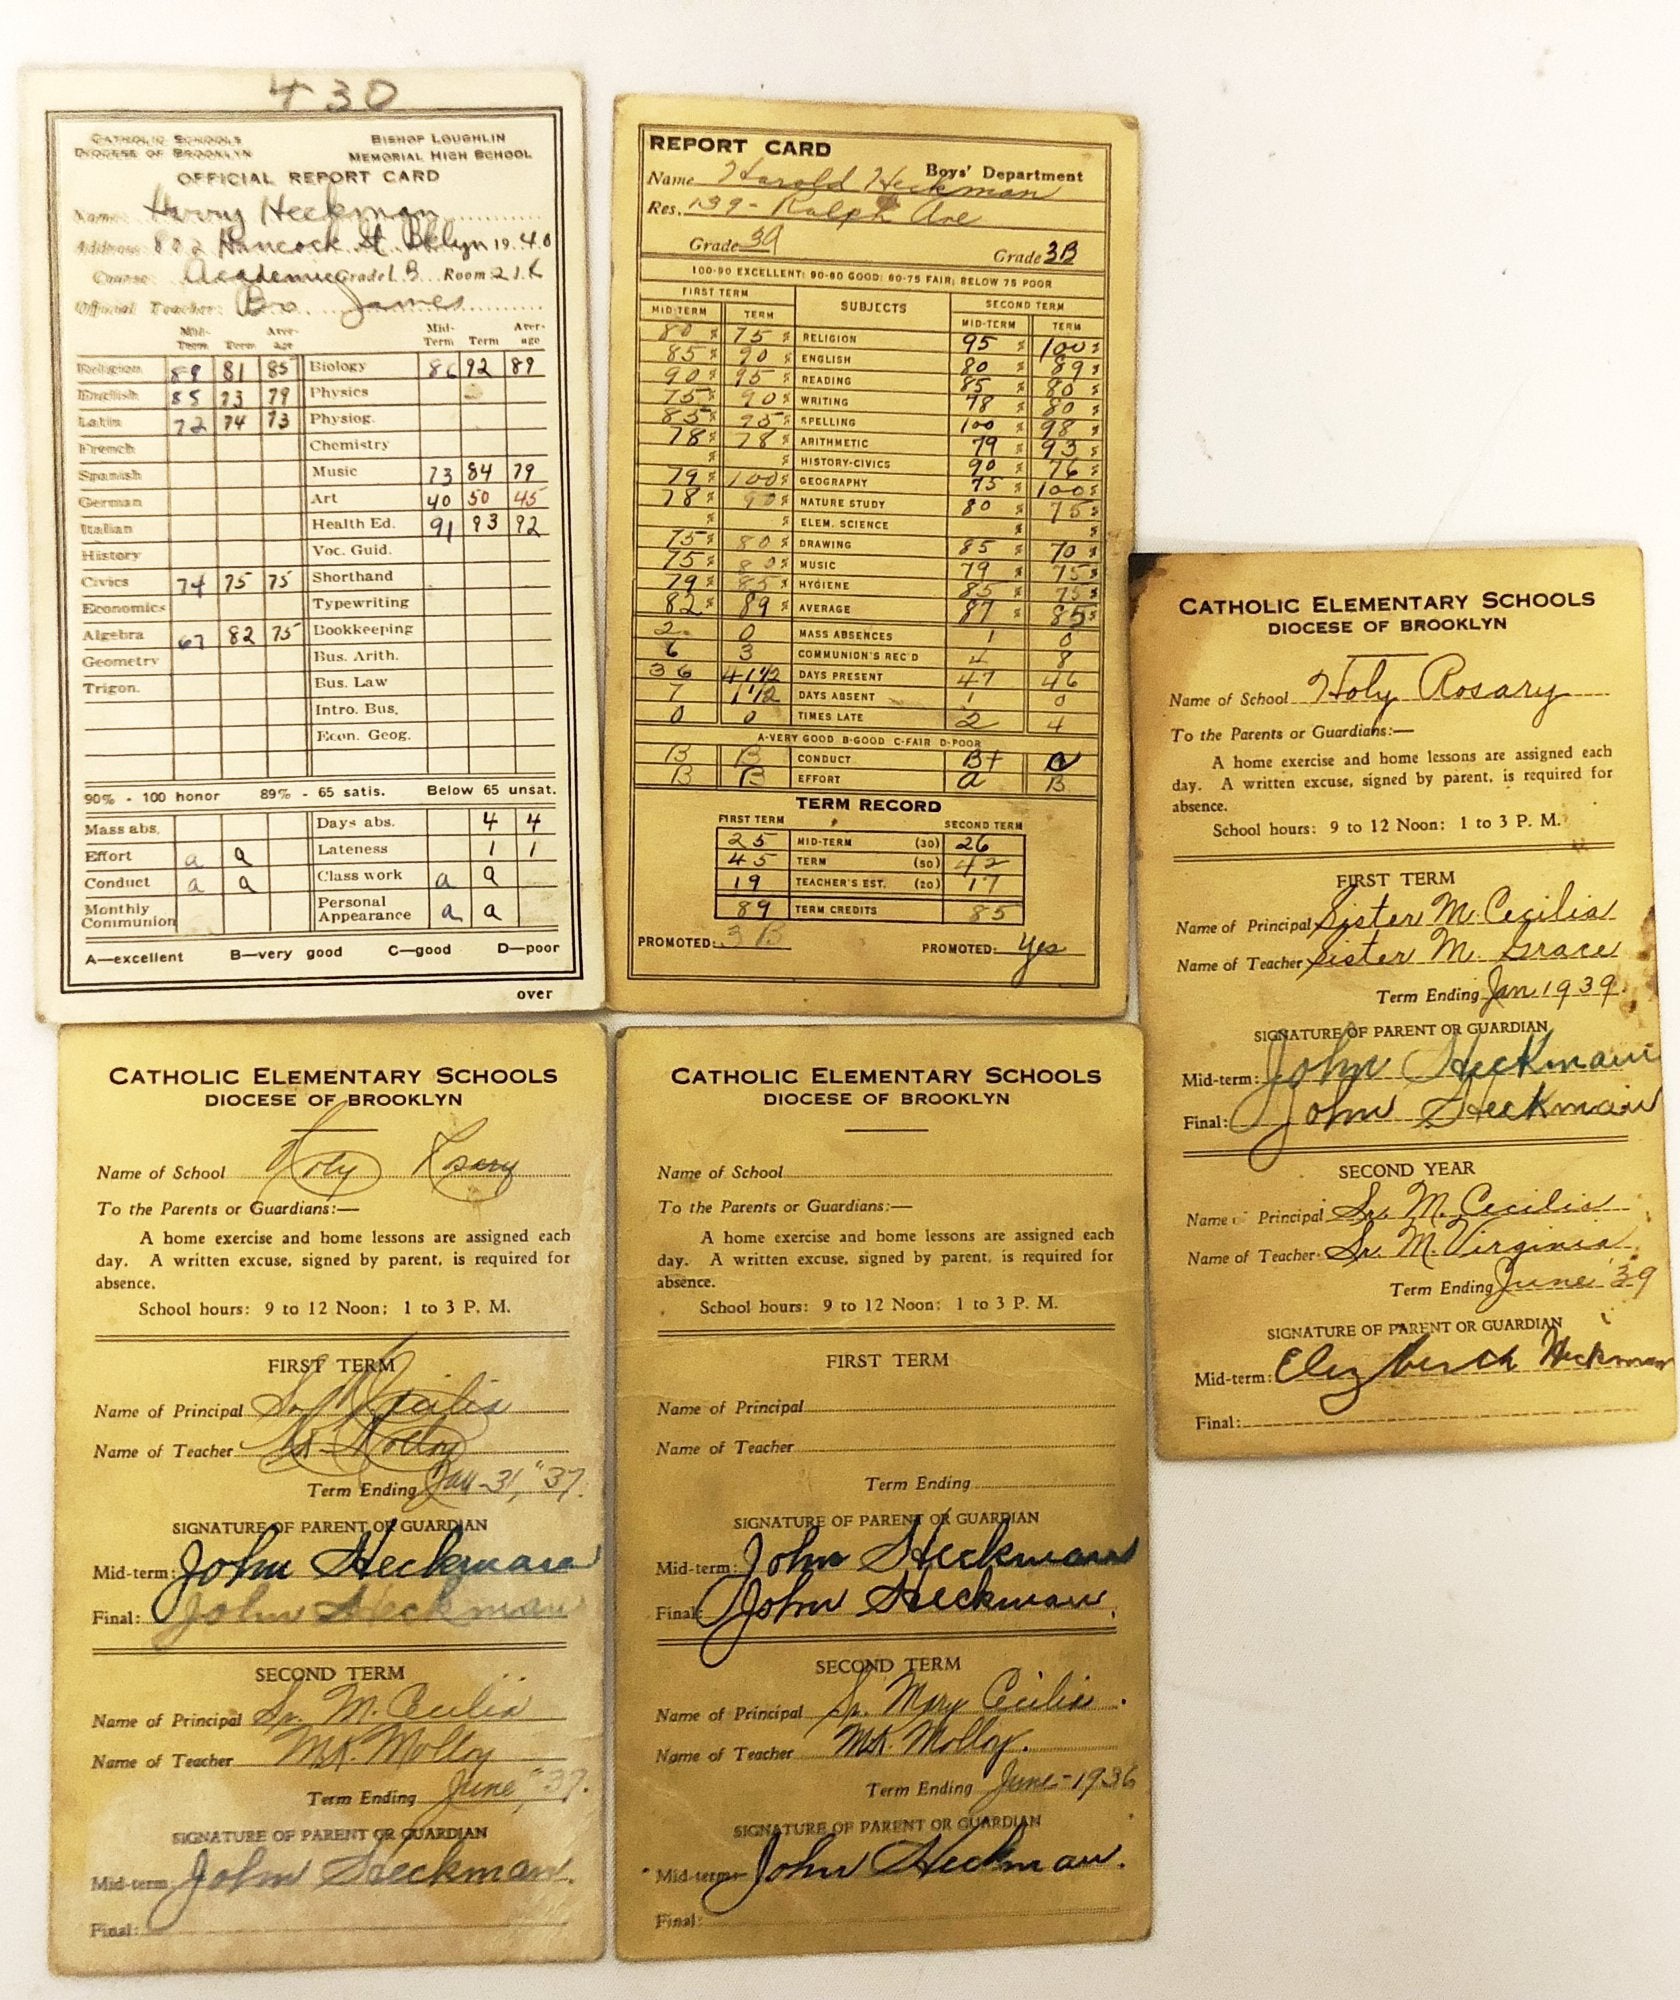 430
CATHOLIC SCHOOLS
DIOCESE OF BROOKLYN
BISHOP LOUGHLIN
MEMORIAL HIGH SCHOOL
OFFICIAL REPORT CARD
Name: Harry Heckman
Address: 802 Hancock St. Bklyn 19 40
Course: Academic Grade 1B Room: 21
Official Teacher: Bro. James
Mid-Term Term Average Mid-Term Term Average
Religion 89 81 85 Biology 86 92 89
English 85 73 79 Physics
Latin 72 74 73 Physiog.
French Chemistry
Spanish Music 73 84 79
German Art 40 50 45
Italian Health Ed. 91 93 92
History Voc. Guid.
Civics 74 75 75 Shorthand
Economics Typewriting
Algebra 67 82 75 Bookkeeping
Geometry Bus. Arith.
Trigon. Bus. Law
Intro. Bus.
Econ. Geog.
90% - 100 honor 89% - 65 satis. Below 65 unsat.
Mass abs. Days abs. 4 4
Effort a a Lateness 1 1
Conduct a a Class work a a
Monthly Communion Personal Appearance a a
A—excellent B—very good C—good D—poor
over
REPORT CARD
Boys' Department
Name Harold Heckman
Res. 139 - Ralph Ave
Grade 3A Grade 3B
100-90 EXCELLENT; 90-80 GOOD; 80-75 FAIR; BELOW 75 POOR
FIRST TERM SUBJECTS SECOND TERM
MID-TERM TERM MID-TERM TERM
80 % 75 % RELIGION 95 % 100 %
85 % 90 % ENGLISH 80 % 89 %
90 % 95 % READING 85 % 80 %
75 % 90 % WRITING 78 % 80 %
85 % 95 % SPELLING 100 % 98 %
78 % 78 % ARITHMETIC 79 % 93 %
% % HISTORY-CIVICS 90 % 76 %
79 % 100 % GEOGRAPHY 75 % 100 %
78 % 90 % NATURE STUDY 80 % 75 %
% % ELEM. SCIENCE % %
75 % 80 % DRAWING 85 % 70 %
75 % 80 % MUSIC 79 % 75 %
79 % 85 % HYGIENE 85 % 75 %
82 % 89 % AVERAGE 87 % 85 %
2 0 MASS ABSENCES 1 0
6 3 COMMUNION'S REC'D 4 8
36 41 1/2 DAYS PRESENT 47 46
7 1 1/2 DAYS ABSENT 1 0
0 0 TIMES LATE 2 4
A-VERY GOOD B-GOOD C-FAIR D-POOR
B B CONDUCT B+ a
B B EFFORT a B
TERM RECORD
FIRST TERM SECOND TERM
25 MID-TERM (30) 26
45 TERM (50) 42
19 TEACHER'S EST. (20) 17
89 TERM CREDITS 85
PROMOTED: 3B PROMOTED: yes
CATHOLIC ELEMENTARY SCHOOLS
DIOCESE OF BROOKLYN
Name of School Holy Rosary
To the Parents or Guardians:—
A home exercise and home lessons are assigned each
day. A written excuse, signed by parent, is required for
absence.
School hours: 9 to 12 Noon: 1 to 3 P. M.
FIRST TERM
Name of Principal Sister M. Cecilia
Name of Teacher Sister M. Grace
Term Ending Jan 1939.
SIGNATURE OF PARENT OR GUARDIAN
Mid-term: John Heckman
Final: John Heckman
SECOND YEAR
Name of Principal Sr. M. Cecilia
Name of Teacher Sr. M. Virginia
Term Ending June '39
SIGNATURE OF PARENT OR GUARDIAN
Mid-term: Heckman
Final:
CATHOLIC ELEMENTARY SCHOOLS
DIOCESE OF BROOKLYN
Name of School Holy Rosary
To the Parents or Guardians:—
A home exercise and home lessons are assigned each
day. A written excuse, signed by parent, is required for
absence.
School hours: 9 to 12 Noon; 1 to 3 P. M.
FIRST TERM
Name of Principal Sr. M. Cecilia
Name of Teacher Mr. Molloy
Term Ending Jan - 31, "37.
SIGNATURE OF PARENT OR GUARDIAN
Mid-term: John Heckman
Final: John Heckman
SECOND TERM
Name of Principal Sr. M. Cecilia
Name of Teacher Mr. Molloy
Term Ending June, "37.
SIGNATURE OF PARENT OR GUARDIAN
Mid-term John Heckman.
Final:
CATHOLIC ELEMENTARY SCHOOLS
DIOCESE OF BROOKLYN
Name of School
To the Parents or Guardians:—
A home exercise and home lessons are assigned each
day. A written excuse, signed by parent, is required for
absence.
School hours: 9 to 12 Noon; 1 to 3 P. M.
FIRST TERM
Name of Principal
Name of Teacher
Term Ending
SIGNATURE OF PARENT OR GUARDIAN
Mid-term: John Heckman
Final: John Heckman.
SECOND TERM
Name of Principal Sr. Mary Cecilia.
Name of Teacher Mr. Molloy.
Term Ending June - 1936
SIGNATURE OF PARENT OR GUARDIAN
Mid-term John Heckman.
Final: